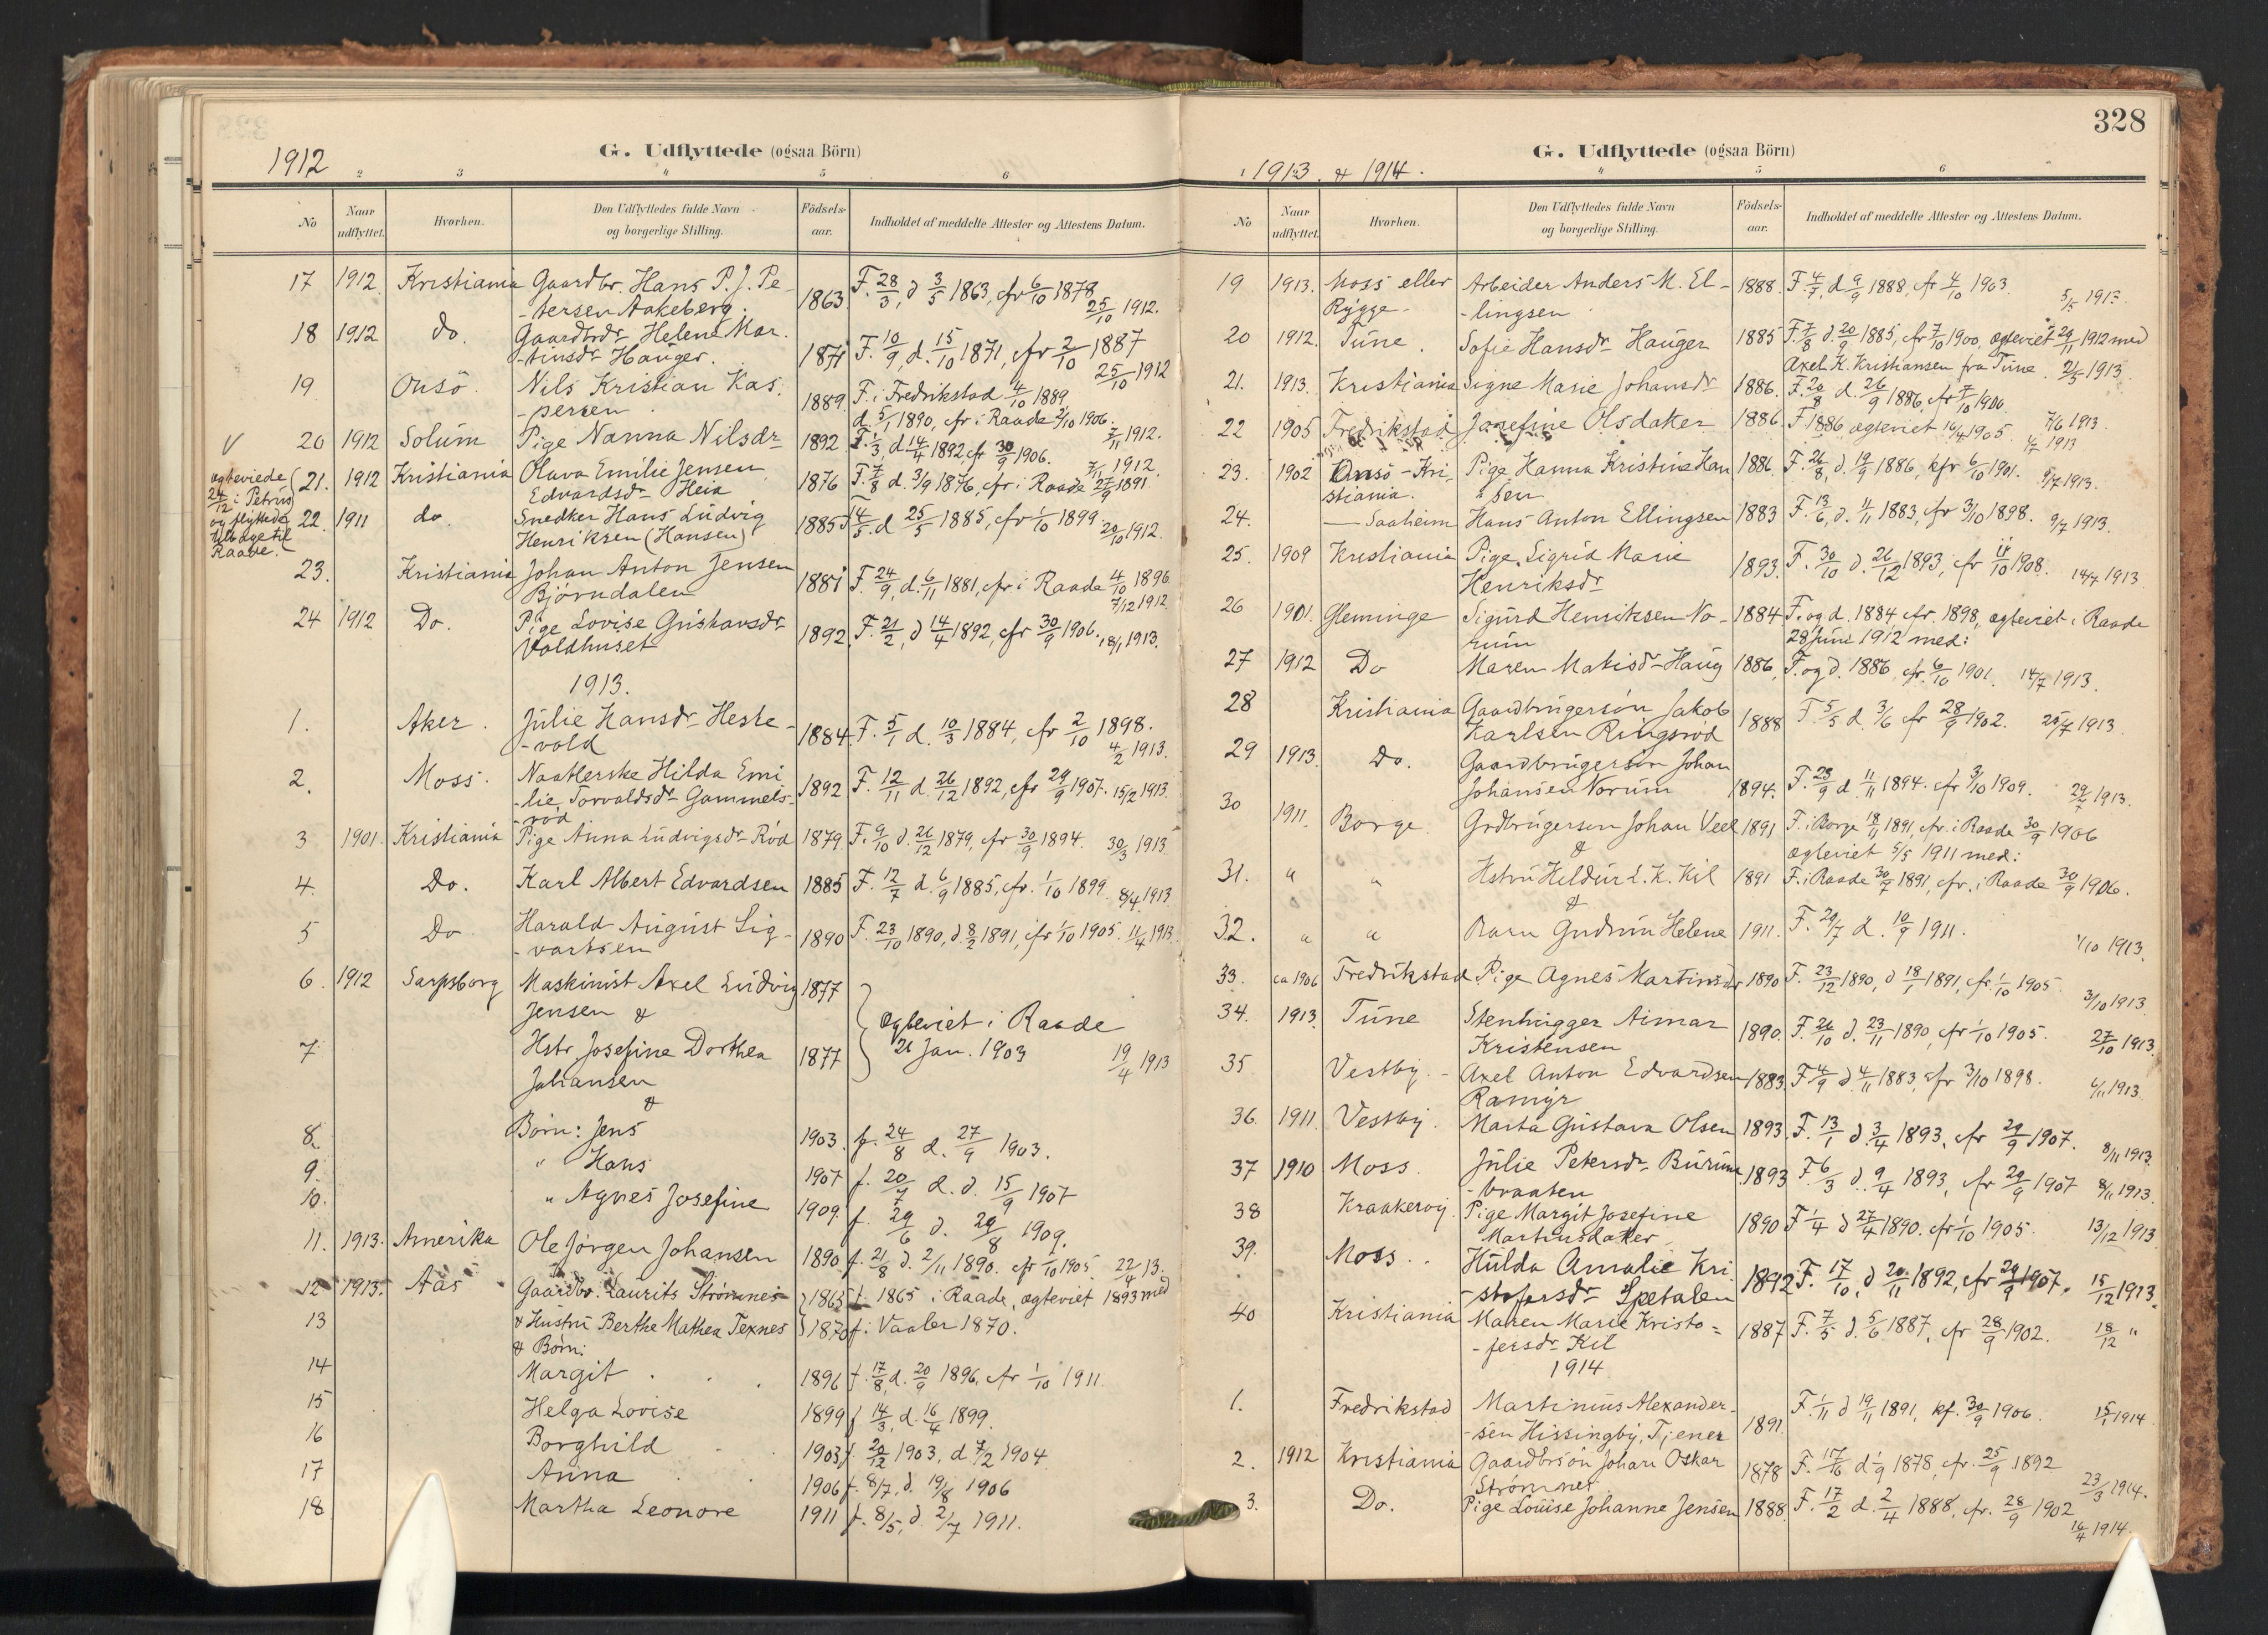 1912
G. Udflyttede (ogsaa Börn)
2 3 4 5 6
No
Naar udflyttet.
Hvorhen.
Den Udflyttedes fulde Navn og borgerlige Stilling.
Födsels-aar.
Indholdet af meddelte Attester og Attestens Datum.
17 1912 Kristiania Gaardbr. Hans P. J. Pe-
-tersen Aakeberg. 1863 F. 28/3, d 3/5 1863, cfr 6/10 1878
25/10 1912.
18 1912 do. Gaardbrdr Helene Mar-
-tinsdr Hauger. 1871 F. 10/9, d. 15/10 1871, cfr 2/10 1887
25/10 1912
19 Onsö Nils Kristian Kas-
-persen 1889. F. i Fredrikstad 4/10 1889
d. 5/1 1890, cfr i Raade 2/10 1906.
7/11 1912.
V 20 1912 Solum Pige Nanna Nilsdr 1892 F. 1/3, d 14/4 1892, cfr 30/9 1906.
7/11 1912.
21. 1912 Kristiania Olava Emilie Jensen
Edvardsdr Heia 1876 F. 7/8 d. 3/9 1876, cfr i Raade 27/9 1891.
ægteviede
24/12 i Petrus
og flyttede
tilbage til
Raade.
22. 1911 do. Snedker Hans Ludvig
Henriksen (Hansen) 1885 F 14/5. d 25/5 1885, cfr 1/10 1899.
20/10 1912.
23. Kristiania Johan Anton Jensen
Bjørndalen 1881 F. 24/9, d. 6/11 1881, cfr i Raade 4/10 1896
7/12 1912.
24 1912 Do. Pige Lovise Gustavsdr
Voldhuset 1892. F. 21/2, d 14/4 1892, cfr 30/9 1906. 18/1 1913.
1913.
1. Aker. Julie Hansdr Heste-
-vold 1884 F. 5/1 d. 10/3 1884, cfr 2/10 1898.
4/2 1913.
2. Moss. Naatlerske Hilda Emi
-lie Torvaldsdr Gammels-
-rød 1892 F. 12/11 d. 26/12 1892, cfr 29/9 1907. 15/2 1913.
3 1901. Kristiania Pige Anna Ludvigsdr Rød 1879. F. 9/10 d. 26/12 1879, cfr 30/9 1894. 30/3 1913
4. Do. Karl Albert Edvardsen 1885 F. 12/7 d. 6/9 1885, cfr. 1/10 1899. 8/4 1913
5 Do Harald August Sig-
-vartsen 1890 F. 23/10 1890, d. 8/2 1891, cfr 1/10 1905. 11/4 1913.
6. 1912 Sarpsborg Maskinist Axel Ludvig 1877
Jensen &
Ægteviet i Raade
21 Jan. 1903
7 Hstr Josefine Dorthea 1877 19/4 1913
Johansen
&
8. Børn: Jens 1903. f. 24/8 d. 27/9 1903.
9. " Hans 1907 f. 20/7 d. d. 15/9 1907
10. " Agnes Josefine 1909 f. 29/6 d. 29/8 1909.
11. 1913. Amerika Ole Jørgen Johansen 1890 f. 21/8 d. 2/11 1890. cfr 1/10 1905. 22/4 13.
12 1913. Aas Gaardbr. Laurits Strømnes 1865 f. 1865 i Raade, ægteviet 1893 med
13 & Hustru Berthe Mathea Texnes 1870 f. i Vaaler 1870.
& Børn:
14 Margit 1896 f. 17/8, d. 20/9 1896, cfr 1/10 1911.
15 Helga Lovise 1899 f. 14/3, d. 16/4 1899.
16 Borghild 1903 f. 20/12 1903, d 7/2 1904
17 Anna 1906 f. 8/7, d. 19/8 1906
18 Martha Leonore 1911 f. 8/5, d. 2/7 1911.
328
1913. & 1914.
G. Udflyttede (ogsaa Börn)
1 4 5 6
No
Naar udflyttet.
Hvorhen.
Den Udflyttedes fulde Navn og borgerlige Stilling.
Födsels-aar.
Indholdet af meddelte Attester og Attestens Datum.
19 1913. Moss eller Arbeider Anders M. El- 1888. F. 4/7, d 9/9 1888, cfr 4/10 1903.
Rygge. -lingsen 5/5 1913.
20 1912. Tune. Sofie Hansdr Hauger 1885 F. 7/8 d. 20/9 1885, cfr 7/10 1900, ægteviet 29/11 1912 med
Axel K. Kristiansen fra Tune. 21/5 1913.
21. 1913. Kristiania Signe Marie Johansdr 1886. F. 20/8 d. 26/9 1886, cfr 7/10 1900.
7/6 1913.
22 1905 Fredrikstad Josefine Olsdaker 1886. F 1886 ægteviet 16/4 1905.
1/7 1913
23. 1902 Onsö - Kri- Pige Hanna Kristine Han 1886. F. 26/8, d. 19/9 1886, kfr 6/10 1901.
stiania. sen 9/7 1913.
24. — Saaheim Hans Anton Ellingsen 1883 F. 13/6, d. 11/11 1883, cfr 3/10 1898. 9/7 1913.
25. 1909 Kristiania Pige Sigrid Marie
Henriksdr 1893. F. 30/10 d. 26/12 1893, cfr 11/10 1908. 14/7 1913
26 1901. Glemminge Sigurd Henriksen No- 1884 F. og d. 1884 cfr. 1898, ægteviet i Raade
rum 28 Juni 1912 med:
27 1912 Do Maren Matisdr Haug 1886, F. og d. 1886, cfr. 6/10 1901. 14/7 1913.
28 Kristiania Gaardbrugersön Jakob
Karlsen Ringsrød 1888 F 5/5 d. 3/6 cfr 28/9 1902. 25/7 1913.
29 1913. Do. Gaardbrugersön Johan
Johansen Norum 1894. F. 23/9 d. 11/11 1894. cfr 3/10 1909. 29/7 1913.
30 1911. Borge Grdbrugersøn Johan Veel 1891 F. i Borge 18/11 1891, cfr. i Raade 30/9 1906
& ægteviet 5/5 1911 med:
31. " " Hstru Heldur L. K. Kil 1891 F. i Raade 30/7 1891, cfr. i Raade 30/9 1906.
&
32. " " Barn Gudrun Helene 1911. F. 29/7 d. 10/9 1911.
1/10 1913.
33. ca 1906 Fredrikstad Pige Agnes Martinsdr 1890 F. 23/12 1890, d 18/1 1891, cfr. 1/10 1905.
3/10 1913
34. 1913. Tune Stenhugger Aimar
Kristensen 1890. F. 26/10 d. 23/11 1890, cfr 1/10 1905. 27/10 1913.
35 Vestby. Axel Anton Edvardsen 1883. F 4/9 d 4/11 1883, cfr 3/10 1898.
Ramyr 6/11 1913.
36 1911. Vestby. Marta Gustava Olsen 1893. F. 13/1 d. 3/4 1893, cfr 29/9 1907.
8/11 1913.
37 1910 Moss. Julie Petersdr Burum 1893 F. 6/3 d. 9/4 1893, cfr 29/9 1907 8/11 1913.
-braaten
38 Kraakeroy. Pige Margit Josefine
Martinsdatter 1890 F 1/4 d 27/4 1890. cfr 1/10 1905. 13/12 1913.
39. Moss. Hulda Amalie Kri-
-stofersdr Spetalen 1892 F. 17/10, d 20/11 1892, cfr 29/9 1907. 15/12 1913.
40 Kristiania Maren Marie Kristo-
-fersdr Kil 1887 F. 7/5 d. 5/6 1887, cfr 28/9 1902. 18/12 "
1914
1. Fredrikstad Martinius Alexander-
-sen Hissingby, Tjener 1891. F. 1/11 d 19/11 1891, kf. 30/9 1906. 15/1 1914.
2. 1912 Kristiania Gaardbrsön Johan Oskar
Strømnes 1878 F. d 1/9 1878, cfr. 25/9 1892
23/3 1914.
3. Do. Pige Louise Johanne Jensen 1888. F. 17/2 d. 2/4 1888, cfr. 28/9 1902
16/4 1914.